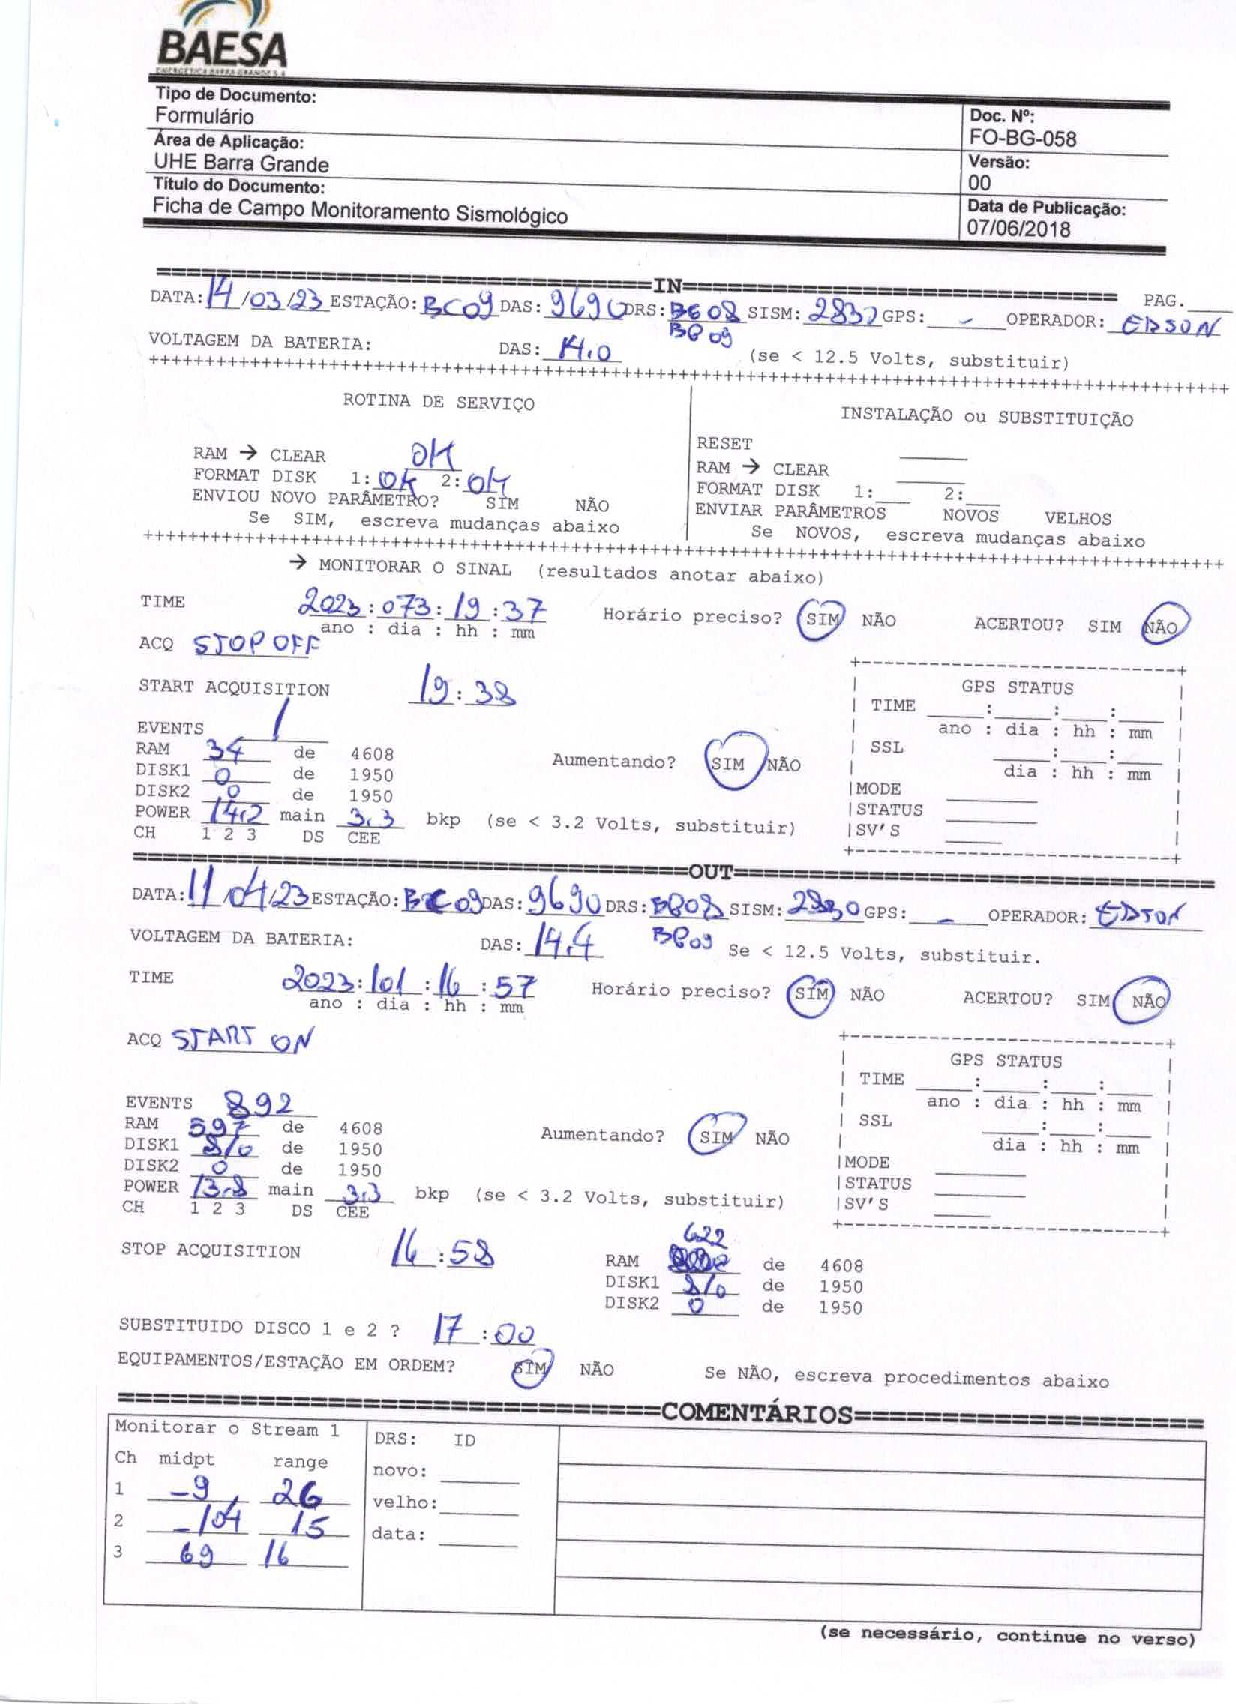 BAESA
ENERGÉTICA BARRA GRANDE S.A
Tipo de Documento:
Formulário
Doc. Nº:
FO-BG-058
Área de Aplicação:
UHE Barra Grande
Versão:
00
Título do Documento:
Ficha de Campo Monitoramento Sismológico
Data de Publicação:
07/06/2018
==================================IN==================================
PAG.____
DATA: 14/03/23 ESTAÇÃO: BC09 DAS: 9690 DRS: BG08 SISM: 2832 GPS: - OPERADOR: EDSON
BP09
VOLTAGEM DA BATERIA: DAS: 14.0 (se < 12.5 Volts, substituir)
++++++++++++++++++++++++++++++++++++++++++++++++++++++++++++++++
ROTINA DE SERVIÇO
RAM → CLEAR OK
FORMAT DISK 1: OK 2: OK
ENVIOU NOVO PARÂMETRO? SIM NÃO
Se SIM, escreva mudanças abaixo
INSTALAÇÃO ou SUBSTITUIÇÃO
RESET ____
RAM → CLEAR ____
FORMAT DISK 1:___ 2:___
ENVIAR PARÂMETROS NOVOS VELHOS
Se NOVOS, escreva mudanças abaixo
++++++++++++++++++++++++++++++++++++++++++++++++++++++++++++++++
→ MONITORAR O SINAL (resultados anotar abaixo)
TIME 2023:073:19:37 Horário preciso? SIM NÃO ACERTOU? SIM NÃO
ano : dia : hh : mm
ACQ STOP OFF
START ACQUISITION 19:38
EVENTS 1
RAM 34 de 4608
DISK1 0 de 1950
DISK2 0 de 1950
POWER 14.2 main 3.3 bkp (se < 3.2 Volts, substituir)
CH 1 2 3 DS CEE
Aumentando? SIM NÃO
GPS STATUS
TIME ____:____:___:___
ano : dia : hh : mm
SSL ____:___:___
dia : hh : mm
MODE ____
STATUS ____
SV'S
==================================OUT==================================
DATA: 11/04/23 ESTAÇÃO: BC09 DAS: 9690 DRS: BP08 SISM: 2830 GPS: - OPERADOR: EDSON
BP09
VOLTAGEM DA BATERIA: DAS: 14.4 Se < 12.5 Volts, substituir.
TIME 2023:101:16:57 Horário preciso? SIM NÃO ACERTOU? SIM NÃO
ano : dia : hh : mm
ACQ START ON
EVENTS 892
RAM 597 de 4608
DISK1 8/0 de 1950
DISK2 0 de 1950
POWER 13.8 main 3.3 bkp (se < 3.2 Volts, substituir)
CH 1 2 3 DS CEE
Aumentando? SIM NÃO
GPS STATUS
TIME ____:____:___:___
ano : dia : hh : mm
SSL ____:___:___
dia : hh : mm
MODE ____
STATUS ____
SV'S ____
STOP ACQUISITION 16:58
622
RAM de 4608
DISK1 8/0 de 1950
DISK2 0 de 1950
SUBSTITUIDO DISCO 1 e 2 ? 17:00
EQUIPAMENTOS/ESTAÇÃO EM ORDEM? SIM NÃO Se NÃO, escreva procedimentos abaixo
==================================COMENTÁRIOS==================================
Monitorar o Stream 1
Ch midpt range
1 -9 26
2 -104 15
3 69 16
DRS: ID
novo: ____
velho: ____
data: ____
(se necessário, continue no verso)